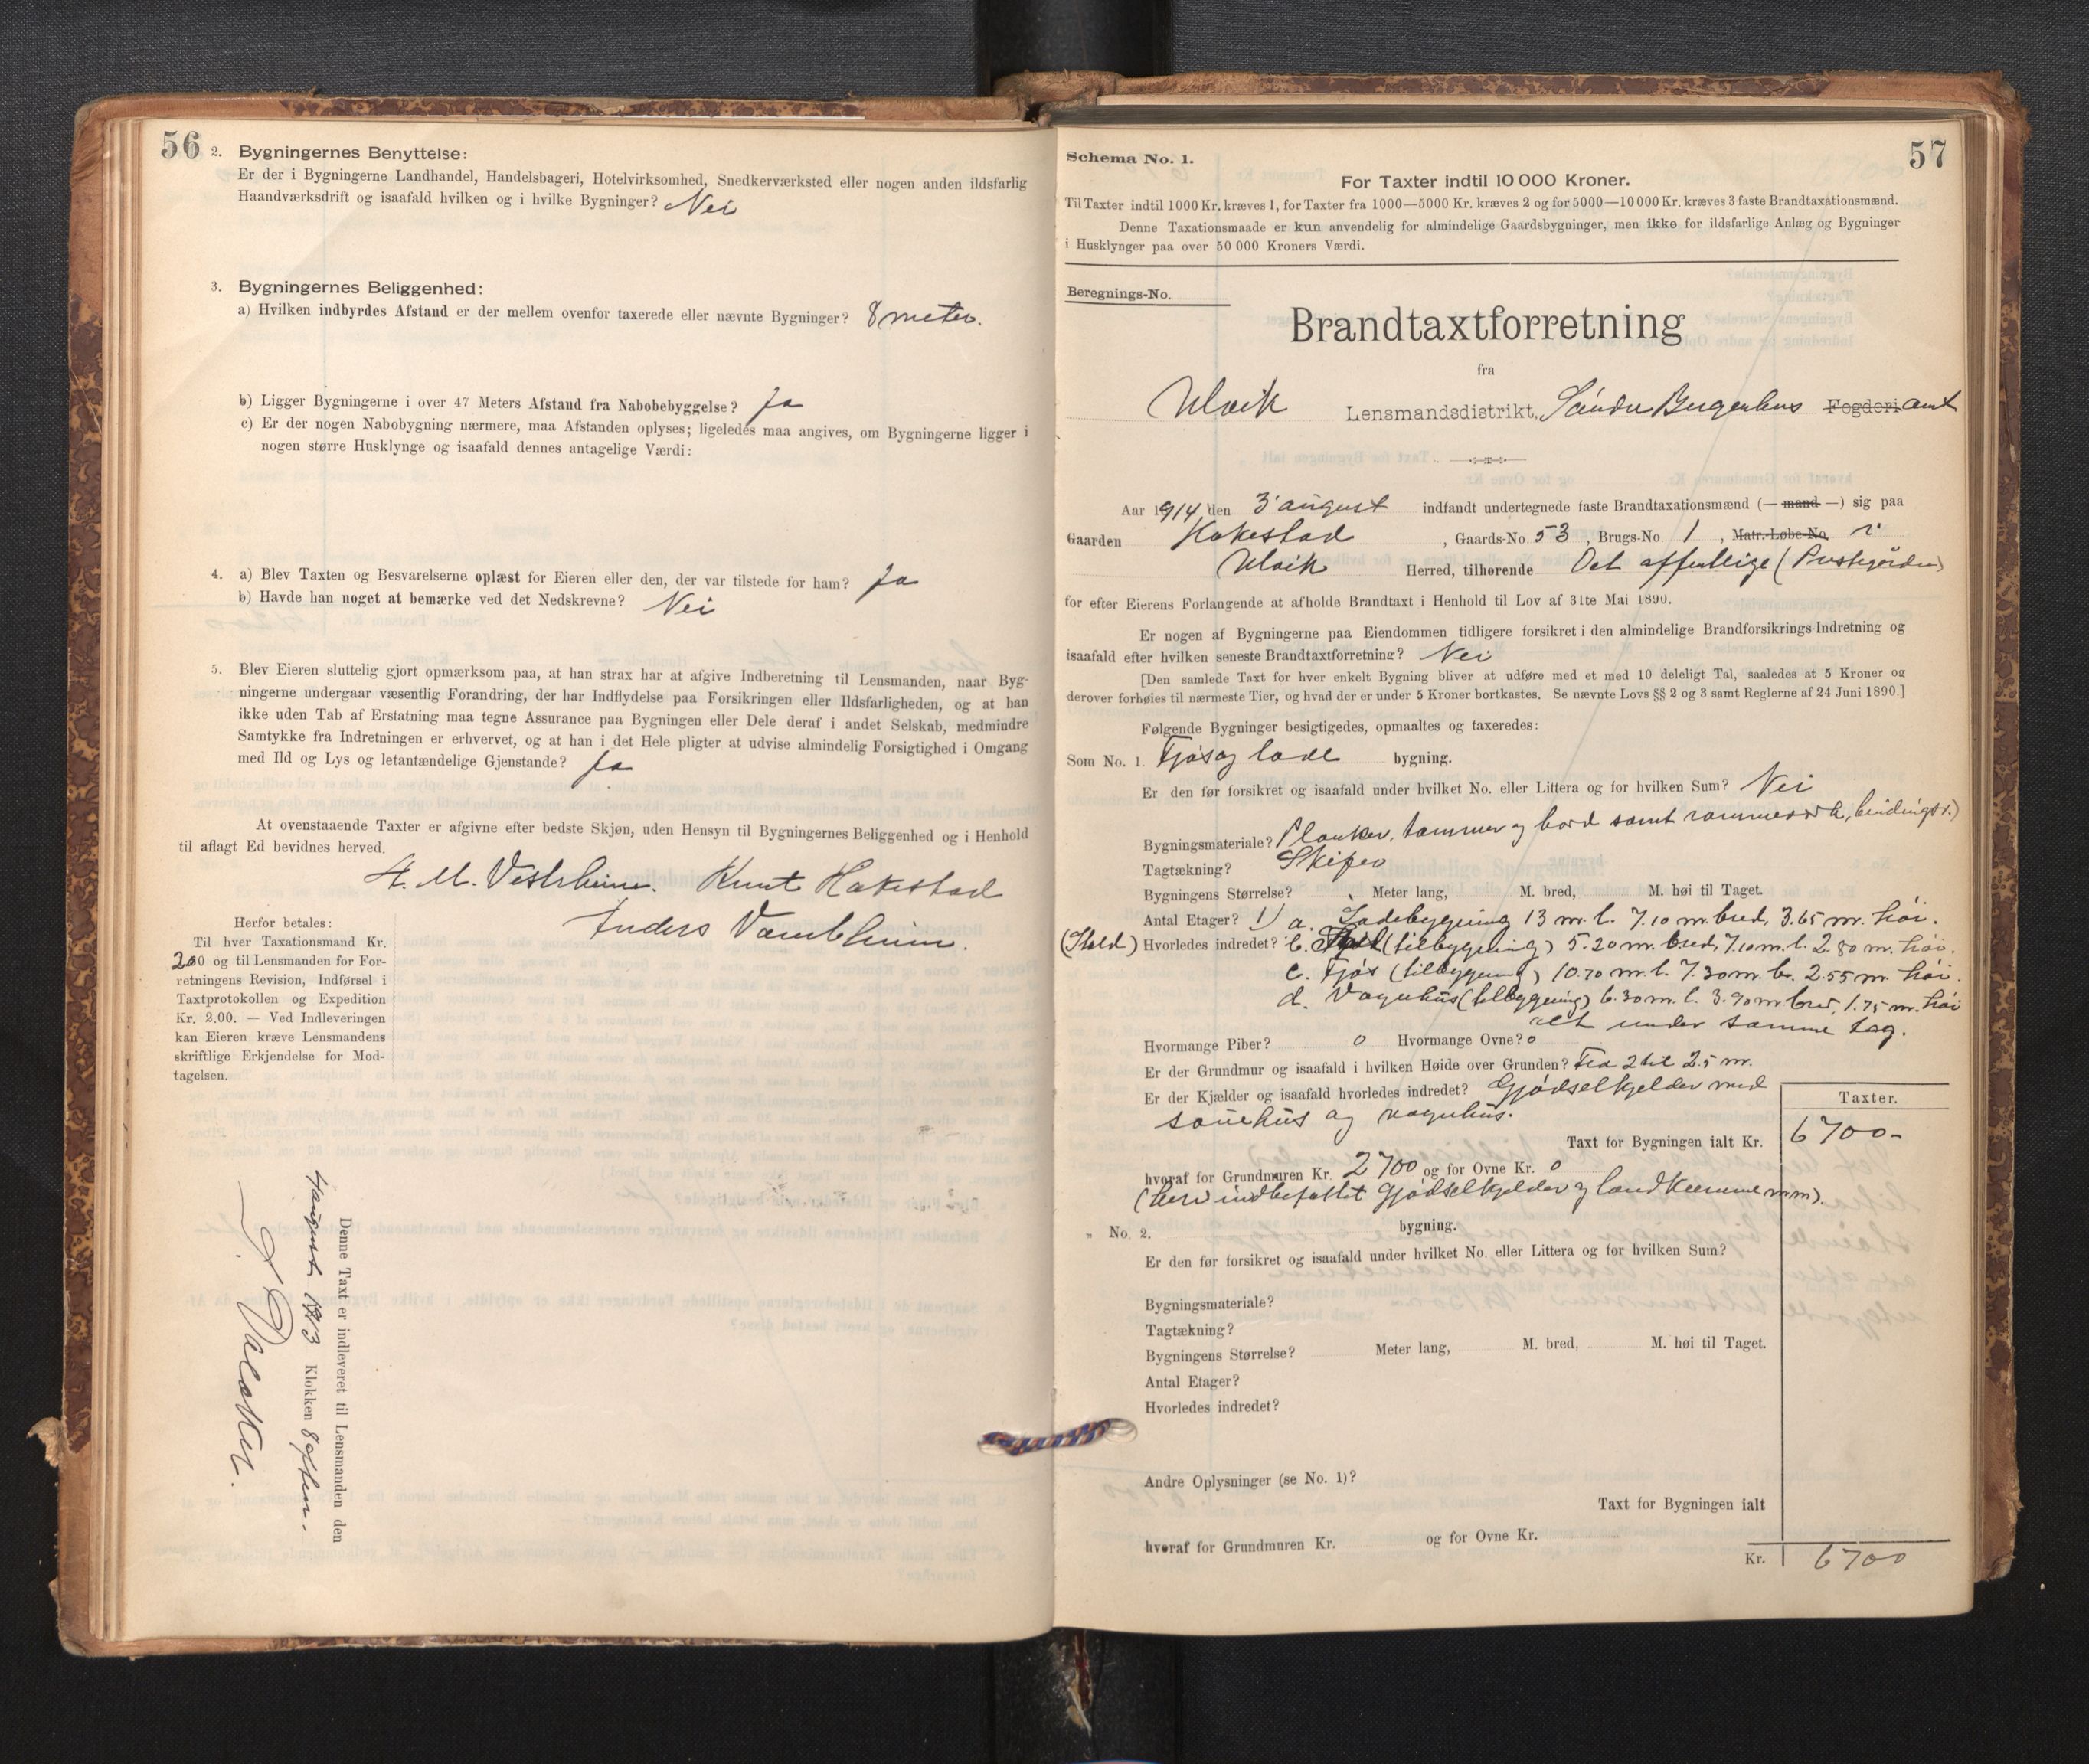 56
2. Bygningernes Benyttelse:
Er der i Bygningerne Landhandel, Handelsbageri, Hotelvirksomhed, Snedkerværksted eller nogen anden ildsfarlig
Haandværksdrift og isaafald hvilken og i hvilke Bygninger? Nei
3. Bygningernes Beliggenhed:
a) Hvilken indbyrdes Afstand er der mellem ovenfor taxerede eller nævnte Bygninger? 8 meter.
b) Ligger Bygningerne i over 47 Meters Afstand fra Nabobebyggelse? Ja
c) Er der nogen Nabobygning nærmere, maa Afstanden oplyses; ligeledes maa angives, om Bygningerne ligger i
nogen større Husklynge og isaafald dennes antagelige Værdi:
4. a) Blev Taxten og Besvarelserne oplæst for Eieren eller den, der var tilstede for ham? Ja
b) Havde han noget at bemærke ved det Nedskrevne? Nei
5. Blev Eieren sluttelig gjort opmærksom paa, at han strax har at afgive Indberetning til Lensmanden, naar Byg-
ningerne undergaar væsentlig Forandring, der har Indflydelse paa Forsikringen eller Ildsfarligheden, og at han
ikke uden Tab af Erstatning maa tegne Assurance paa Bygningen eller Dele deraf i andet Selskab, medmindre
Samtykke fra Indretningen er erhvervet, og at han i det Hele pligter at udvise almindelig Forsigtighed i Omgang
med Ild og Lys og letantændelige Gjenstande? Ja
At ovenstaaende Taxter er afgivne efter bedste Skjøn, uden Hensyn til Bygningernes Beliggenhed og i Henhold
til aflagt Ed bevidnes herved.
H. M. Vestrheim. Knut Hakestad
Anders Vambheim.
Herfor betales:
Til hver Taxationsmand Kr.
2.00 og til Lensmanden for For-
retningens Revision, Indførsel i
Taxtprotokollen og Expedition
Kr. 2.00. — Ved Indleveringen
kan Eieren kræve Lensmandens
skriftlige Erkjendelse for Mod-
tagelsen.
Denne Taxt er indleveret til Lensmanden den
4 august 1913 Klokken 8 often.
57
Schema No. 1.
For Taxter indtil 10 000 Kroner.
Til Taxter indtil 1000 Kr. kræves 1, for Taxter fra 1000—5000 Kr. kræves 2 og for 5000—10 000 Kr. kræves 3 faste Brandtaxationsmænd.
Denne Taxationsmaade er kun anvendelig for almindelige Gaardsbygninger, men ikke for ildsfarlige Anlæg og Bygninger
i Husklynger paa over 50 000 Kroners Værdi.
Beregnings-No.
Brandtaxtforretning
fra
Ulvik Lensmandsdistrikt, Søndre Bergenhus Fogderi amt
Aar 1914 den 3' august indfandt undertegnede faste Brandtaxationsmænd (— mand —) sig paa
Gaarden Hakestad, Gaards-No. 53, Brugs-No. 1, Matr.-Løbe-No. i
Ulvik Herred, tilhørende Det offentlige (Prestegården)
for efter Eierens Forlangende at afholde Brandtaxt i Henhold til Lov af 31te Mai 1890.
Er nogen af Bygningerne paa Eiendommen tidligere forsikret i den almindelige Brandforsikrings-Indretning og
isaafald efter hvilken seneste Brandtaxtforretning? Nei
[Den samlede Taxt for hver enkelt Bygning bliver at udføre med et med 10 deleligt Tal, saaledes at 5 Kroner og
derover forhøies til nærmeste Tier, og hvad der er under 5 Kroner bortkastes. Se nævnte Lovs §§ 2 og 3 samt Reglerne af 24 Juni 1890.]
Følgende Bygninger besigtigedes, opmaaltes og taxeredes:
Som No. 1. Fjøs og lade bygning.
Er den før forsikret og isaafald under hvilket No. eller Littera og for hvilken Sum? Nei
Bygningsmateriale? Planker, tømmer og bord samt rammeverk, bindingsv.)
Tagtækning? Skifer
Bygningens Størrelse? Meter lang, M. bred, M. høi til Taget.
Antal Etager? 1) a. Ladebygning 13 m. l. 7.10 m. bred, 3.65 m. høi.
(Stald) Hvorledes indredet? b. (tilbygning) 5.20 m. bred, 7.10 m. l. 2.80 m. høi.
c. Fjøs (tilbygning) 10.70 m. l. 7.30 m. br. 2.55 m. høi.
d. Vognhus (tilbygning) 6.30 m. l. 3.90 m. bred, 1.75 m. høi
alt under samme tag.
Hvormange Piber? 0 Hvormange Ovne? 0
Er der Grundmur og isaafald i hvilken Høide over Grunden? Fra 2 til 2.5 m.
Er der Kjælder og isaafald hvorledes indredet? Gjødselkjelder med
sauehus og vognhus.
Taxter.
Taxt for Bygningen ialt Kr. 6700-
hvoraf for Grundmuren Kr. 2700 og for Ovne Kr. 0
(heri indbefattet gjødselkjelder og landkummer m.m).
„ No. 2. bygning.
Er den før forsikret og isaafald under hvilket No. eller Littera og for hvilken Sum?
Bygningsmateriale?
Tagtækning?
Bygningens Størrelse? Meter lang, M. bred, M. høi til Taget.
Antal Etager?
Hvorledes indredet?
Andre Oplysninger (se No. 1)?
Taxt for Bygningen ialt
hvoraf for Grundmuren Kr. og for Ovne Kr.
Kr. 6700